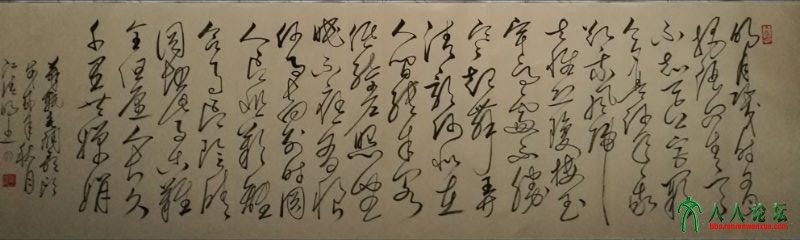 明月几时有
把酒问青天
不知天上宫阙
今夕是何年我
欲乘风归
去惟恐琼楼玉
宇高处不胜
寒起舞弄
清影何似在
人间转朱阁
低绮户照无
眠不应有恨
何事长向别时圆
人有悲欢离
合月有阴晴
圆缺此事古难
全但愿人长久
千里共婵娟
苏轼水调歌头
年秋月
人人论坛